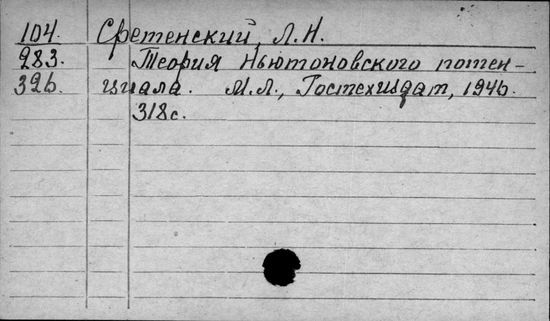 104. Сретенский, Л.Н.
283. Теория Ньютоновского потен-
326. циала. М.Л., Гостехиздат, 1946.
318с.